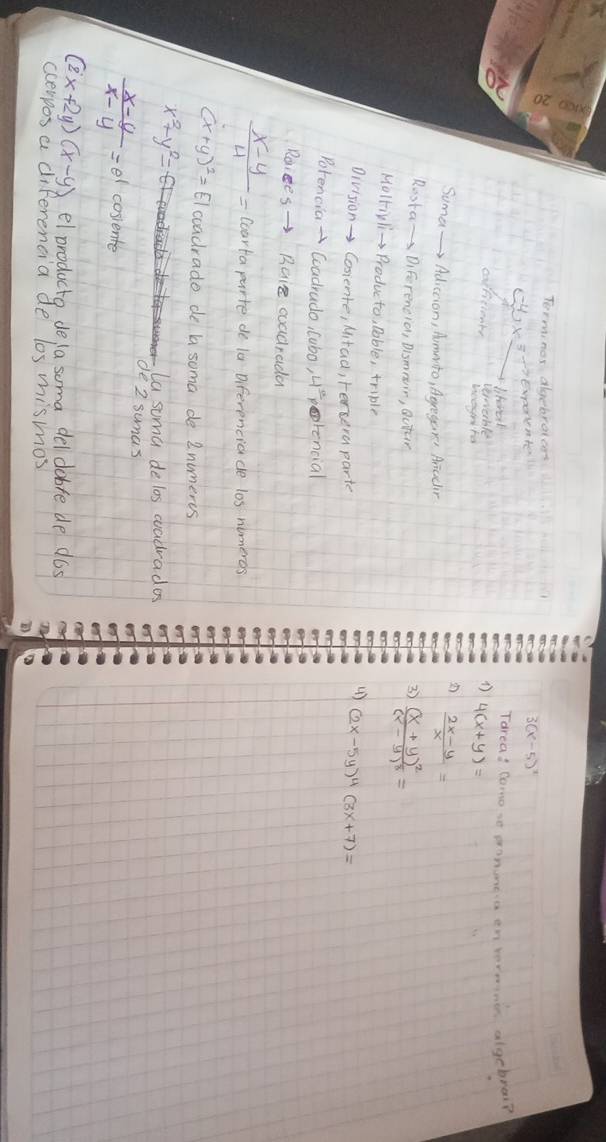 Terminos algebraicos
-4x3 → Exponente
coeficiente
literal
variable
incognita
Suma → Adiccion, Aumento, Agregar, Añadir
Resta → Diferencia, Disminuir, Quitar
Multipli → Producto, Doble, triple
Division → Cosiente, Mitad, tercera parte
Potencia → Cuadrado, Cubo, 4ª potencial
Raices → Raiz cuadrada
x-y/4 = Cuarta parte de la Diferencia de los numeros
(x+y)² = El cuadrado de la suma de 2 numeros
x²+y² = la suma de los cuadrados
de 2 sumas
x-y/x-y = el cosiente
(2x+2y)(x-y) el producto de la suma del doble de dos
a diferencia de los mismos
3(x-5)²
Tarea: Como se pronuncia en termino algebrai?
1) 4(x+y) =
2) 2x-y/x =
3) (x+y)²/(x-y)³ =
4) (2x-5y)⁴ (3x+7) =
20